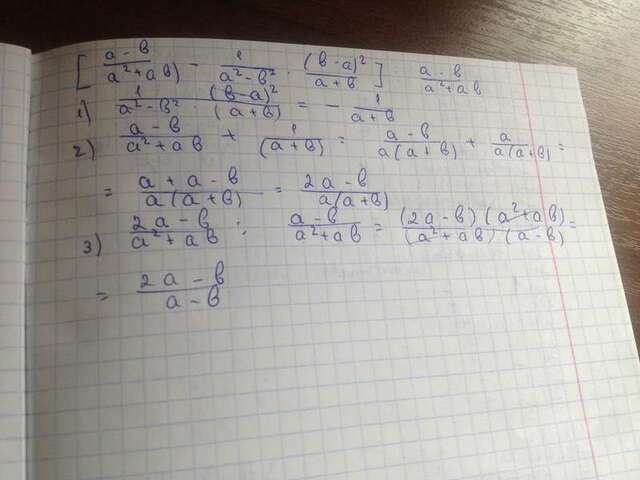 [(a-b)/(a²+ab) - 1/(a²-b²) · (b-a)²/(a+b)] (a-b)/(a²+ab)
1) 1/(a²-b²) · (b-a)²/(a+b) = - 1/(a+b)
2) (a-b)/(a²+ab) + 1/(a+b) = (a-b)/(a(a+b)) + a/(a(a+b)) =
= (a+a-b)/(a(a+b)) = (2a-b)/(a(a+b))
3) (2a-b)/(a²+ab) : (a-b)/(a²+ab) = (2a-b)(a²+ab)/(a²+ab)(a-b) =
= (2a-b)/(a-b)